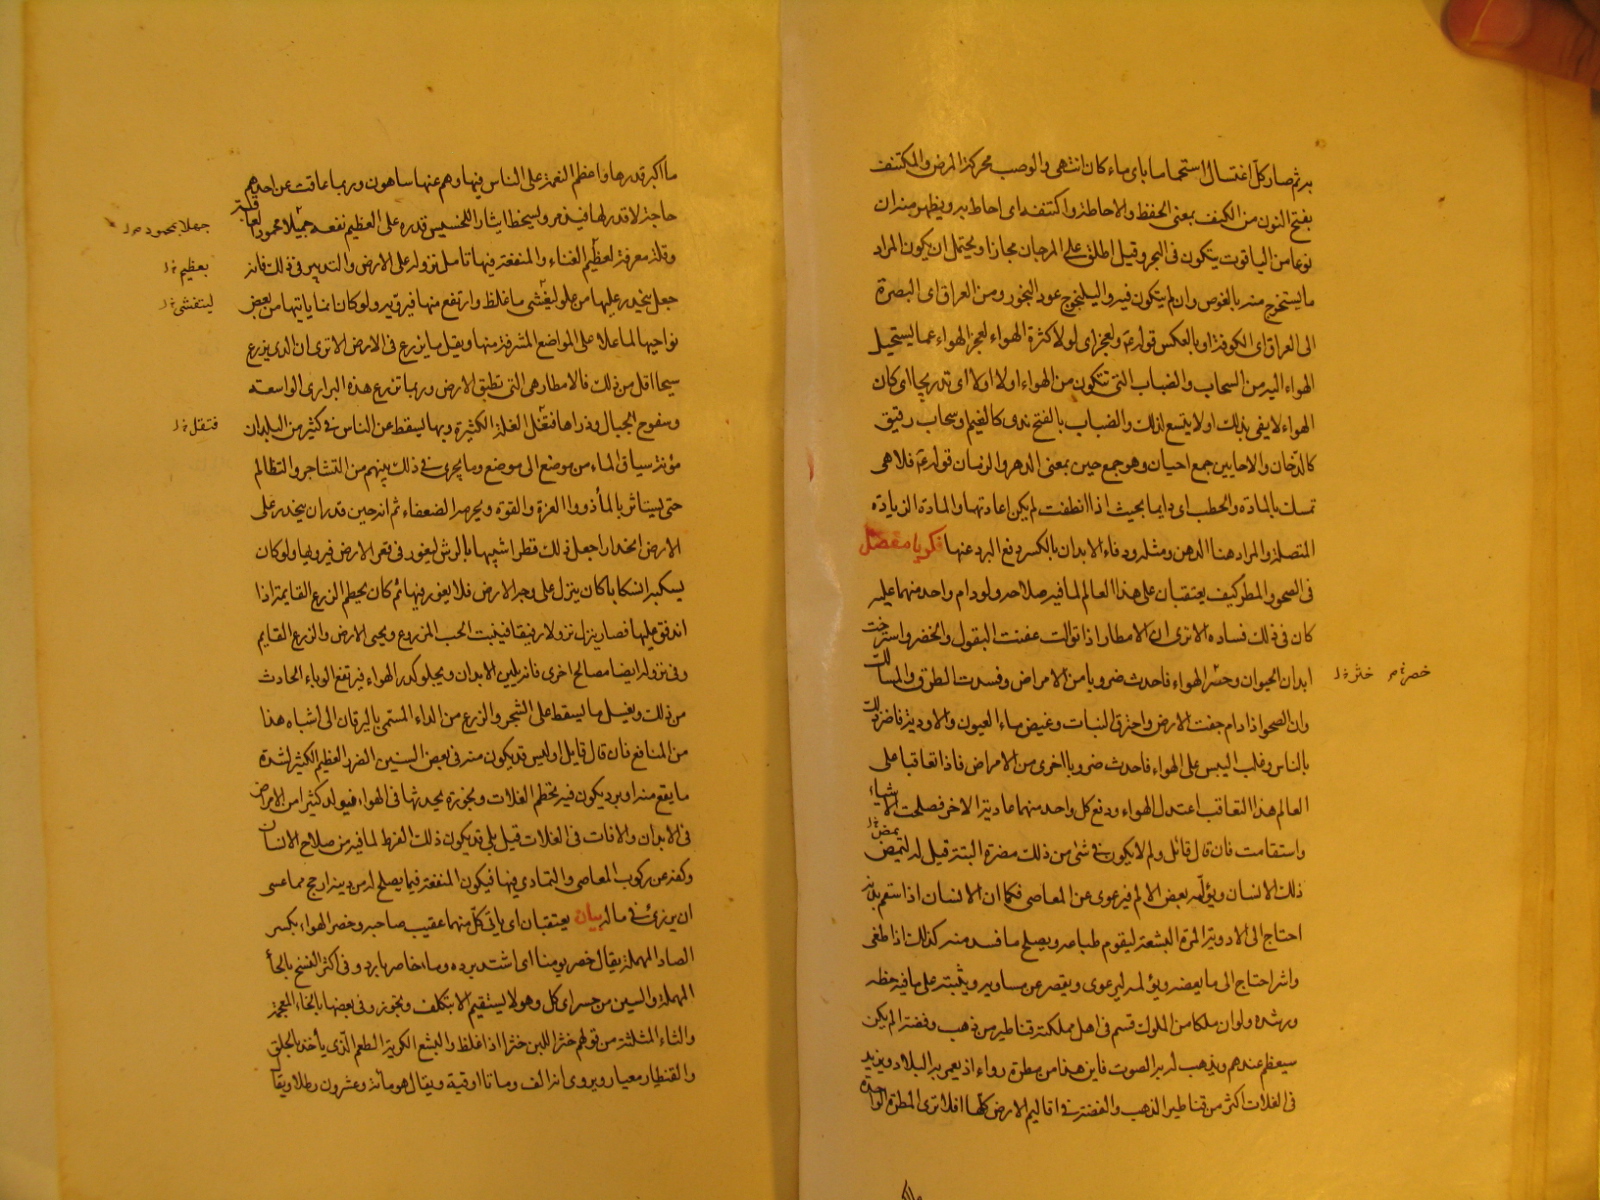 به ثم صار كل اغتسال استحماما باى ماء كان انتهى والوصب محركة المرض والمكتنف
بفتح النون من الكنف بمعنى الحفظ والاحاطة واكتنفه اى احاط به ويظهر منه ان
نوعا من الياقوت يتكون فى البحر وقيل اطلق على المرجان مجازا ويحتمل ان يكون المراد
ما يستخرج منه بالغوص وان لم يتكون فيه واليلنجوج عود البخور ومن العراق اى البصرة
الى العراق اى الكوفة او بالعكس قوله ع ويعجز اى لولا كثرة الهواء لعجز الهواء عما يستحيل
الهواء اليه من السحاب والضباب التى تتكون من الهواء اولا اولا اى تدريجا اى كان
الهواء لا يفى بذلك او لا يتسع لذلك والضباب بالفتح ندى كالغيم او سحاب رقيق
كالدخان والاحايين جمع احيان وهو جمع حين بمعنى الدهر والزمان قوله ع فلا هى
تمسك بالمادة والحطب اى دايما بحيث اذا انطفت لم يكن اعادتها والمادة الزيادة
المتصلة والمراد هنا الدهن ومثله ودفاء الابدان بالكسر دفع البرد عنها فكر يا مفضل
فى الصحو والمطر كيف يعتقبان على هذا العالم لما فيه صلاحه ولو دام واحد منهما عليه
كان فى ذلك فساده الا ترى ان الامطار اذا توالت عفنت البقول والخضر واسترخت
ابدان الحيوان وحسر الهواء فاحدث ضروبا من الامراض وفسدت الطرق والمسالك
خصر خ م خثر خ ل
وان الصحو اذا دام جفت الارض واحترق النبات وغيض ماء العيون والاودية فاضر ذلك
بالناس وغلب اليبس على الهواء فاحدث ضروبا اخرى من الامراض فاذا تعاقبا على
العالم هذا التعاقب اعتدل الهواء ودفع كل واحد منهما عادية الاخر فصلحت الاشياء
واستقامت فان قال قائل ولم لا يكون فى شئ من ذلك مضرة البتة قيل له ليمض
يمض خ ل
ذلك الانسان ويؤلمه بعض الالم فيرعوى عن المعاصى فكما ان الانسان اذا سقم بدنه
احتاج الى الادوية المرة البشعة ليقوم طباعه ويصلح ما فسد منه كذلك اذا طغى
واشر احتاج الى ما يعضه ويؤلمه ليرعوى ويقصر عن مساويه ويثبته على ما فيه حظه
ورشده ولو ان ملكا من الملوك قسم فى اهل مملكته قناطير من ذهب وفضة الم يكن
سيعظم عندهم ويذهب له به الصوت فاين هذا من مطرة رواء اذ يعمر به البلاد ويزيد
فى الغلات اكثر من قناطير الذهب والفضة فى اقاليم الارض كلها افلا ترى المطرة الواحدة
ما اكبر قدرها واعظم النعمة على الناس فيها وهم عنها ساهون وربما عاقت عن احدهم
حاجة لا قدر لها فيذمر ويسخط ايثارا للخسيس قدره على العظيم نفعه جميلا محمودا لعاقبته
جهلا بمحمود خ ل
وقلة معرفة لعظيم الغناء والمنفعة فيها تامل نزوله على الارض والتدبير فى ذلك فانه
بعظيم خ ل
جعل ينحدر عليها من علو ليغشى ما غلظ وارتفع منها فيرويه ولو كان انما ياتيها من بعض
ليتفشى خ ل
نواحيها لما علا على المواضع المشرفة منها ويقل ما يزرع فى الارض الا ترى ان الذى يزرع
سيحا اقل من ذلك فالامطار هى التى تطبق الارض وربما تزرع هذه البرارى الواسعة
وسفوح الجبال وذراها فتغل الغلة الكثيرة وبها يسقط عن الناس فى كثير من البلدان
فتقل خ ل
مؤنة سياق الماء من موضع الى موضع وما يجرى فى ذلك بينهم من التشاجر والتظالم
حتى يستاثر بالماء ذووا العزة والقوة ويحرمه الضعفاء ثم انه حين قدر ان ينحدر على
الارض انحدارا جعل ذلك قطرا شبيها بالرش ليغور فى قعر الارض فيرويها ولو كان
يسكبه انسكابا كان ينزل على وجه الارض فلا يغور فيها ثم كان يحطم الزرع القايمة اذا
اندفق عليها فصار ينزل نزولا رفيقا فينبت الحب المزروع ويحيى الارض والزرع القايم
وفى نزوله ايضا مصالح اخرى فانه يلين الابدان ويجلو كدر الهواء فيرتفع الوباء الحادث
من ذلك ويغسل ما يسقط على الشجر والزرع من الداء المسمى باليرقان الى اشباه هذا
من المنافع فان قال قايل اوليس قد يكون منه فى بعض السنين الضرر العظيم الكثير لشدة
ما يقع منه او برد يكون فيه تحطم الغلات وبخورة يحدثها فى الهواء فيولد كثيرا من الامراض
فى الابدان والافات فى الغلات قيل بلى قد يكون ذلك الفرط لما فيه من صلاح الانسان
وكفه عن ركوب المعاصى والتمادى فيها فيكون المنفعة فيما يصلح له من دينه ارجح مما عسى
ان يرزئ فى ماله بيان يعتقبان اى ياتى كل منهما عقيب صاحبه وخصر الهواء بكسر
الصاد المهملة يقال خصر يومنا اى اشتد برده وماء خاصر بارد وفى اكثر النسخ بالحاء
المهملة والسين من حسر اى كل وهو لا يستقيم الا بتكلف وتجوز وفى بعضها بالخاء المعجمة
والثاء المثلثة من قولهم خثر اللبن خثرا اذا غلظ والبشع الكريه الطعم الذى ياخذ بالحلق
والقنطار معيار ويروى انه الف ومائتا اوقية ويقال هو مائة وعشرون رطلا ويقال